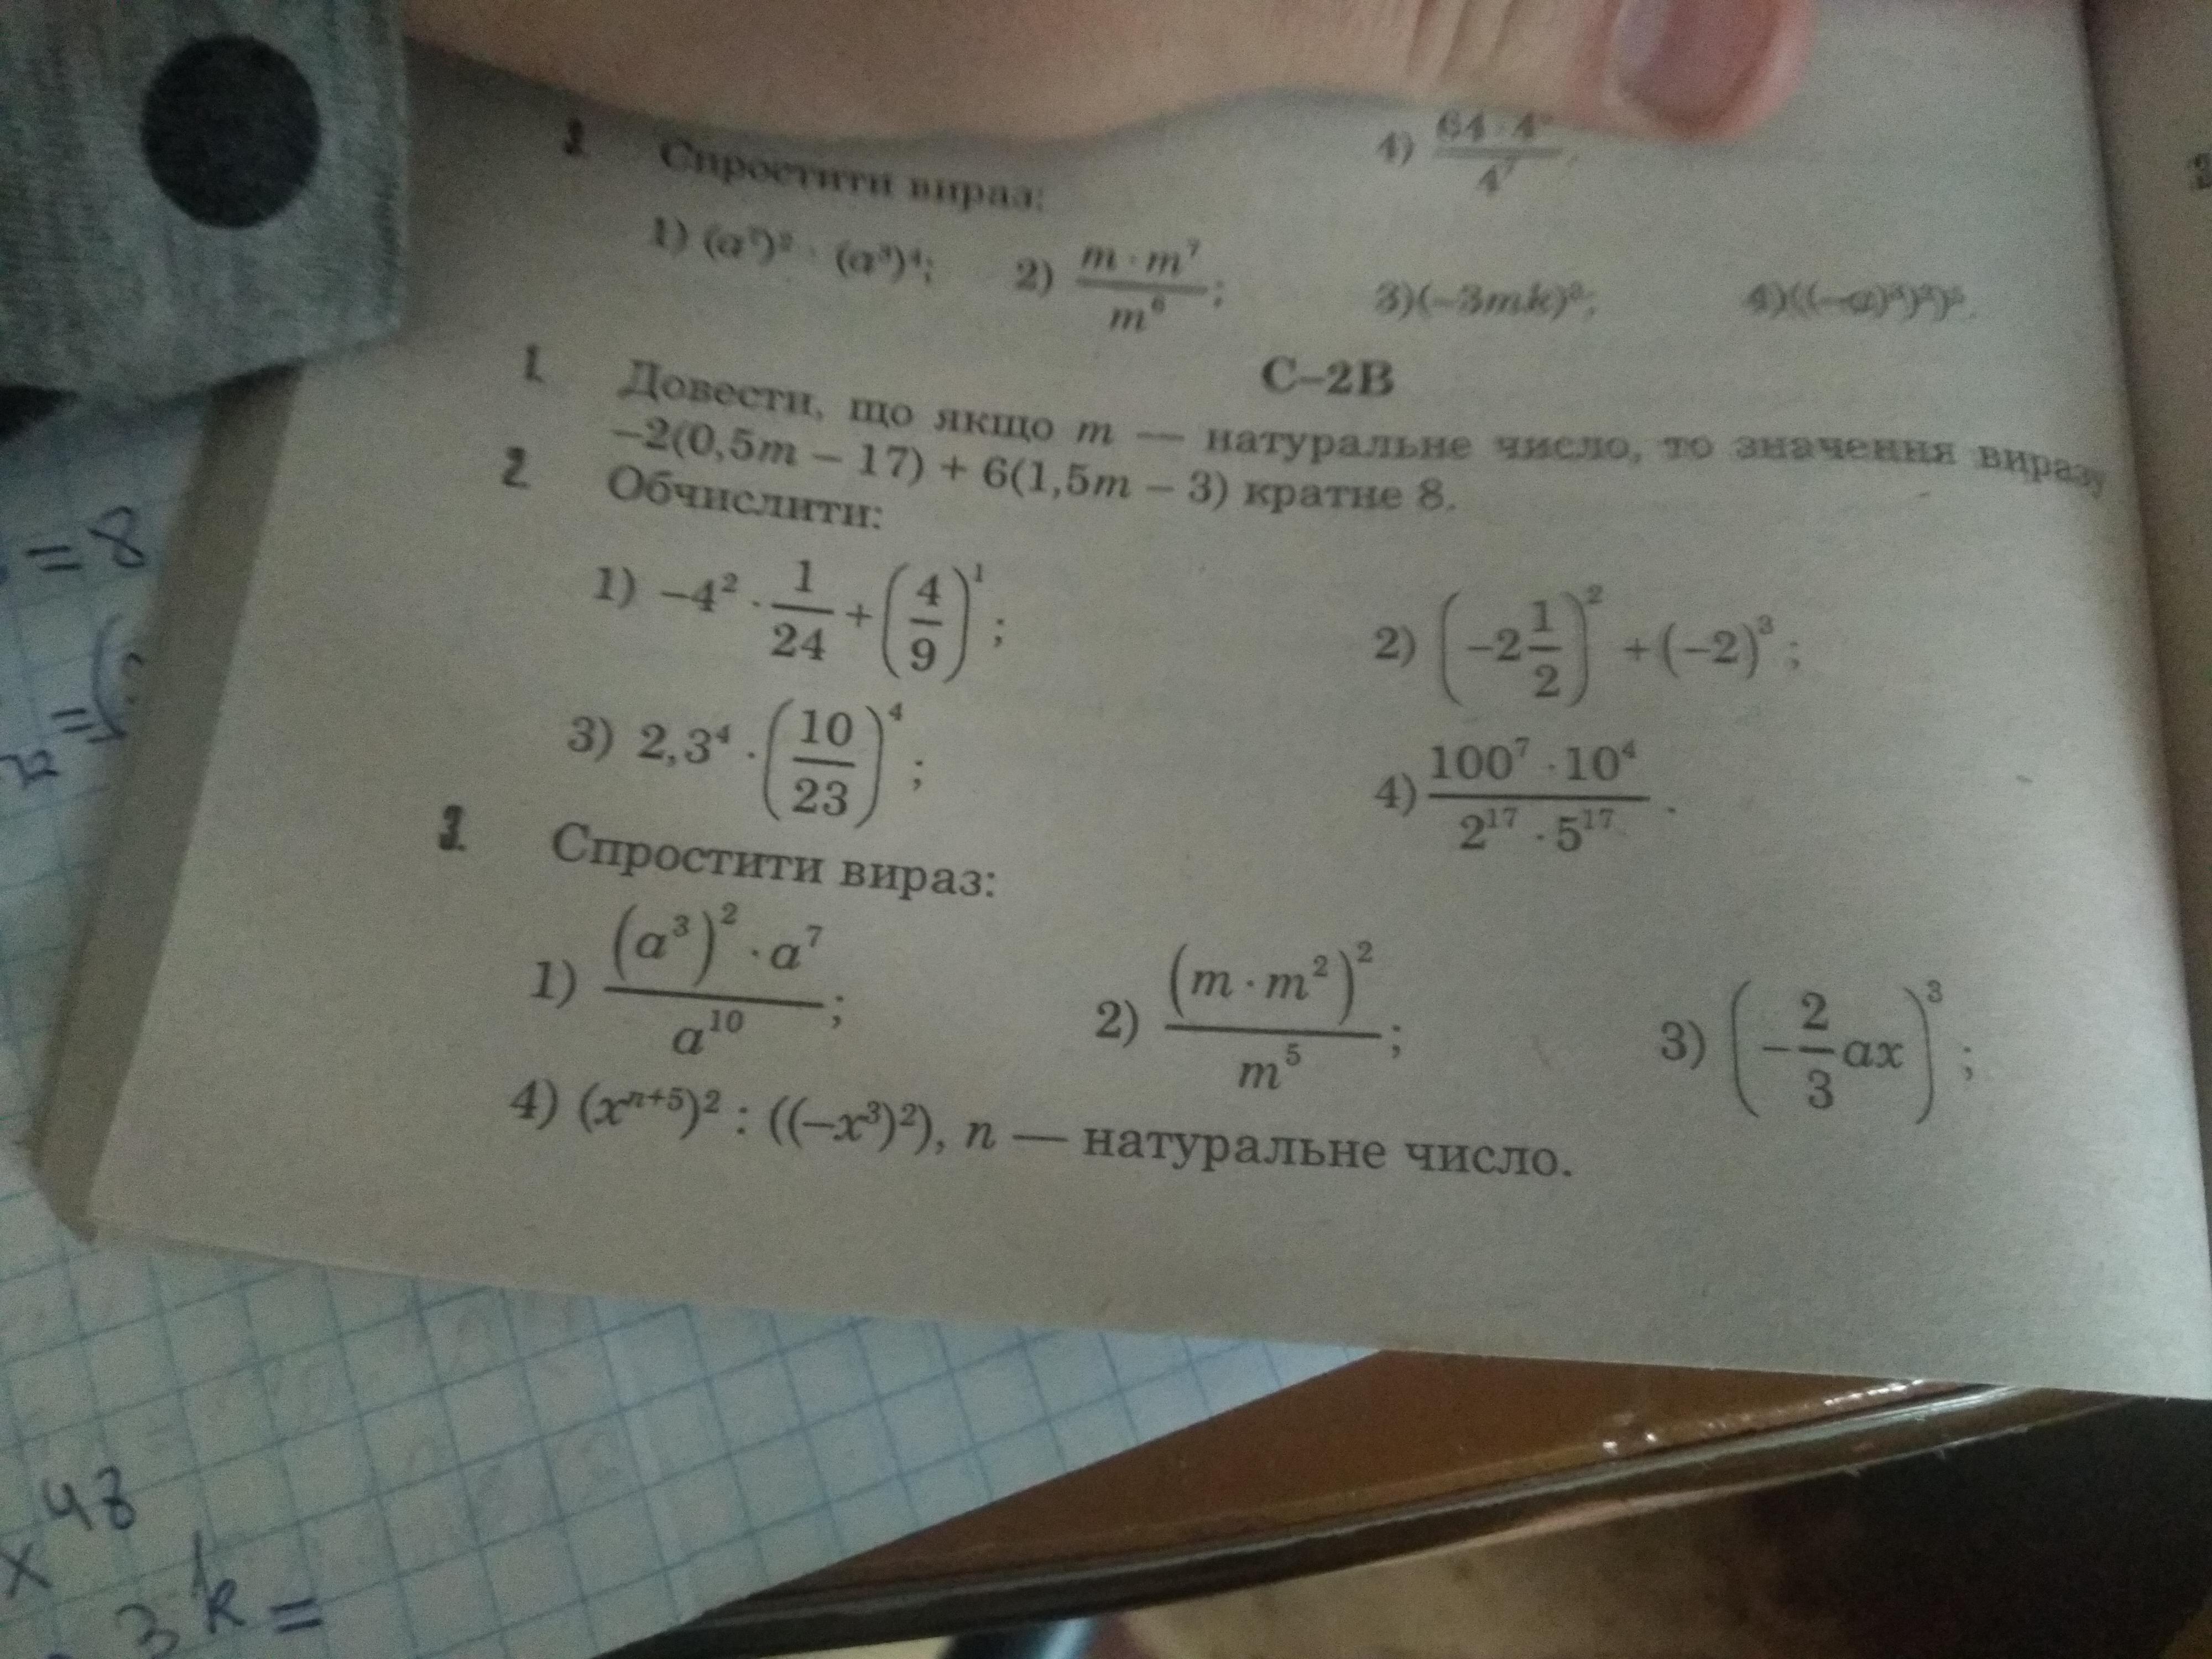 4) 64 · 4 / 4⁷
3. Спростити вираз:
1) (a⁷)² · (a³)⁴; 2) m · m⁷ / m⁶; 3) (–3mk) 4) ((–a)
С–2В
1. Довести, що якщо m — натуральне число, то значення виразу
–2(0,5m – 17) + 6(1,5m – 3) кратне 8.
2. Обчислити:
1) –4² · 1/24 + (4/9)¹; 2) (–2 1/2)² + (–2)³;
3) 2,3⁴ · (10/23)⁴; 4) 100⁷ · 10⁴ / 2¹⁷ · 5¹⁷.
3. Спростити вираз:
1) (a³)² · a⁷ / a¹⁰; 2) (m · m²)² / m⁵; 3) (–2/3 ax)³;
4) (xⁿ⁺⁵)² : ((–x³)²), n — натуральне число.
= 8
=(
x 48
3 k =